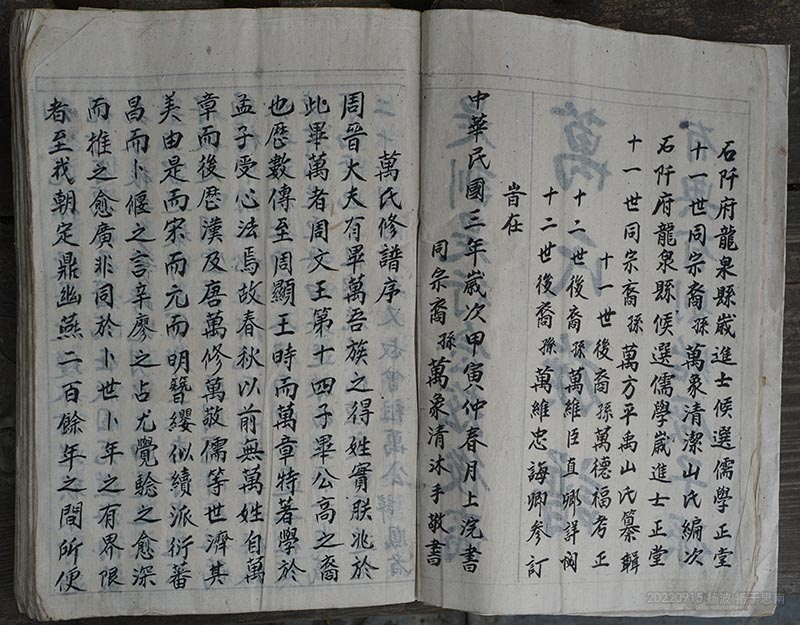 石阡府龍泉縣歲進士候選儒學正堂
十一世同宗裔孫萬象清潔山氏編次
石阡府龍泉縣候選儒學歲進士正堂
十一世同宗裔孫萬方平禹山氏纂輯
十一世後裔孫萬德福考正
十二世後裔孫萬維臣直卿詳閱
十二世後裔孫萬維忠誨卿參訂
旹在
中華民國三年歲次甲寅仲春月上浣書
同宗裔孫萬象清沐手敬書
萬氏修譜序
周晉大夫有畢萬吾族之得姓實朕兆於
此畢萬者周文王第十四子畢公高之裔
也歷數傳至周顯王時而萬章特著學於
孟子受心法焉故春秋以前無萬姓自萬
章而後歷漢及唐萬修萬敬儒等世濟其
美由是而宋而元而明簪纓似續派衍蕃
昌而卜偃之言辛廖之占尤覺驗之愈深
而推之愈廣非同於卜世卜年之有界限
者至我朝定鼎幽燕二百餘年之間所便
20220915 杨波 摄于思南